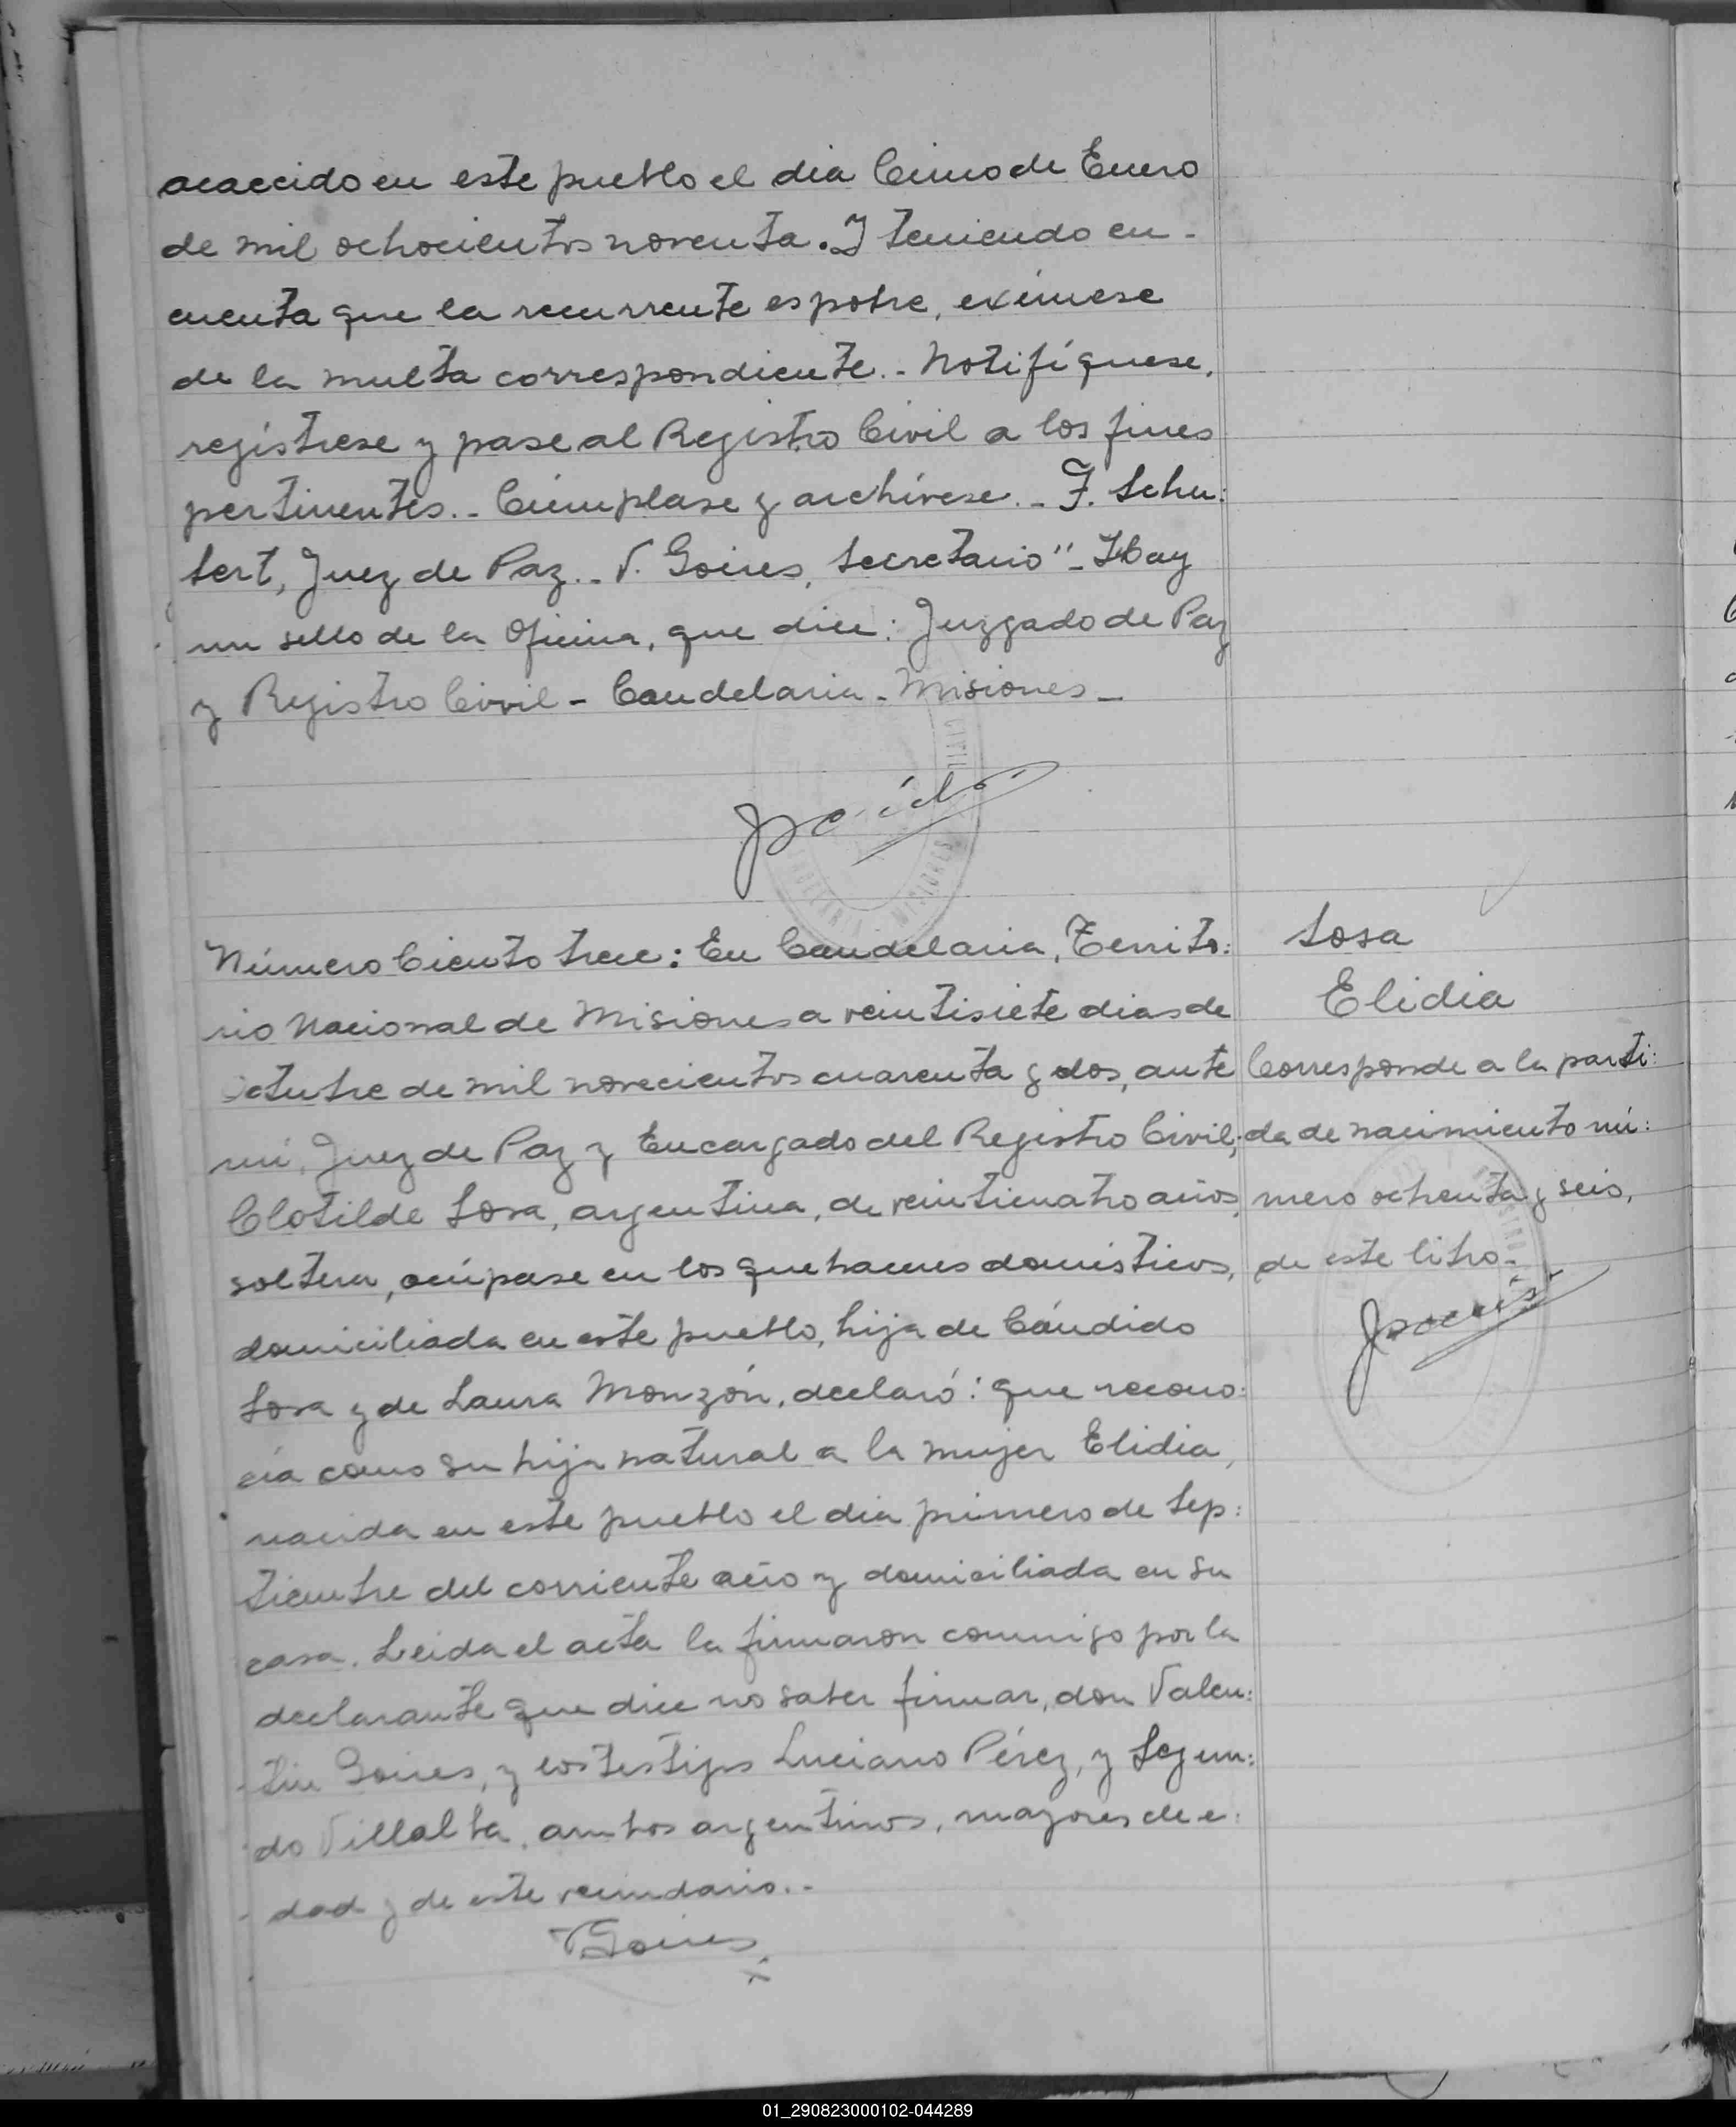 acaecido en este pueblo el dia Cinco de Enero
de mil ochocientos noventa. Y teniendo en-
cuenta que la recurrente es pobre, exímese
de la multa correspondiente.- Notifíquese,
regístrese y pase al Registro Civil a los fines
pertinentes.- Cúmplase y archívese.- F. Schu:
bert, Juez de Paz.- V. Goires, Secretario"- Hay
un sello de la Oficina, que dice: Juzgado de Paz
y Registro Civil - Candelaria - Misiones -
CIVIL
CANDELARIA - MISIONES
Número Ciento trece: En Candelaria, Territo:
rio Nacional de Misiones a veintisiete dias de
Octubre de mil novecientos cuarenta y dos, ante
mí, Juez de Paz y Encargado del Registro Civil;
Clotilde Sosa, argentina, de veinticuatro años,
soltera, ocúpase en los quehaceres domésticos,
domiciliada en este pueblo, hija de Cándido
Sosa y de Laura Monzón, declaró: que recono:
cía como su hija natural a la mujer Elidia,
nacida en este pueblo el dia primero de Sep:
tiembre del corriente año y domiciliada en su
casa. Leida el acta la firmaron conmigo por la
declarante que dice no saber firmar, don Valen:
tin Goires, y los testigos Luciano Pérez, y Segun:
do Villalba, ambos argentinos, mayores de e:
dad y de este vecindario.-
VGoires
Sosa
Elidia
Corresponde a la parti:
da de nacimiento nú:
mero ochenta y seis,
de este libro.-
01_290823000102-044289